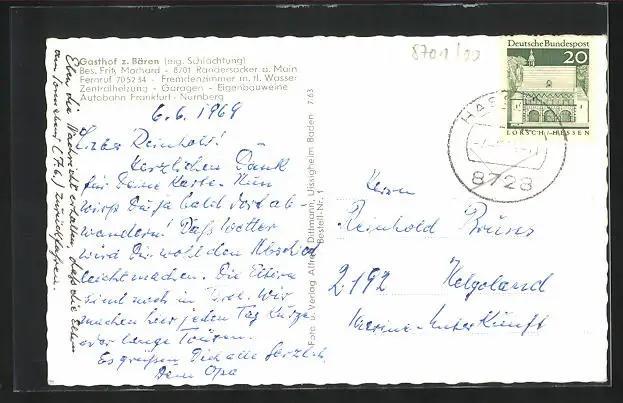 Gasthof z. Bären (eig. Schlachtung)
Bes. Fritz Machard - 8701 Randersacker a. Main
Fernruf 705234 - Fremdenzimmer m. fl. Wasser
Zentralheizung - Garagen - Eigenbauweine
Autobahn Frankfurt - Nürnberg
6. 6. 1969
Lieber Reinhold!
Herzlichen Dank
für Deine Karte. Nun
wirst Du ja bald dort ab-
wandern! Das Wetter
wird Dir wohl den Abschied
leicht machen. Die Eltern
sind noch in Tirol. Wir
machen hier jeden Tag kurze
oder lange Touren.
Es grüßen Dich alle herzlich,
Dein Opa
Eben die Nachricht erhalten, daß die Eltern
am Sonnabend (7.6.)
Foto u. Verlag Alfred Dittmann, Uissigheim Baden 7/63
Bestell-Nr. 1
8701/
Deutsche Bundespost
20
LORSCH/HESSEN
8728
Herrn
Reinhold Bruns
2192 Helgoland
Marine-Unterkunft